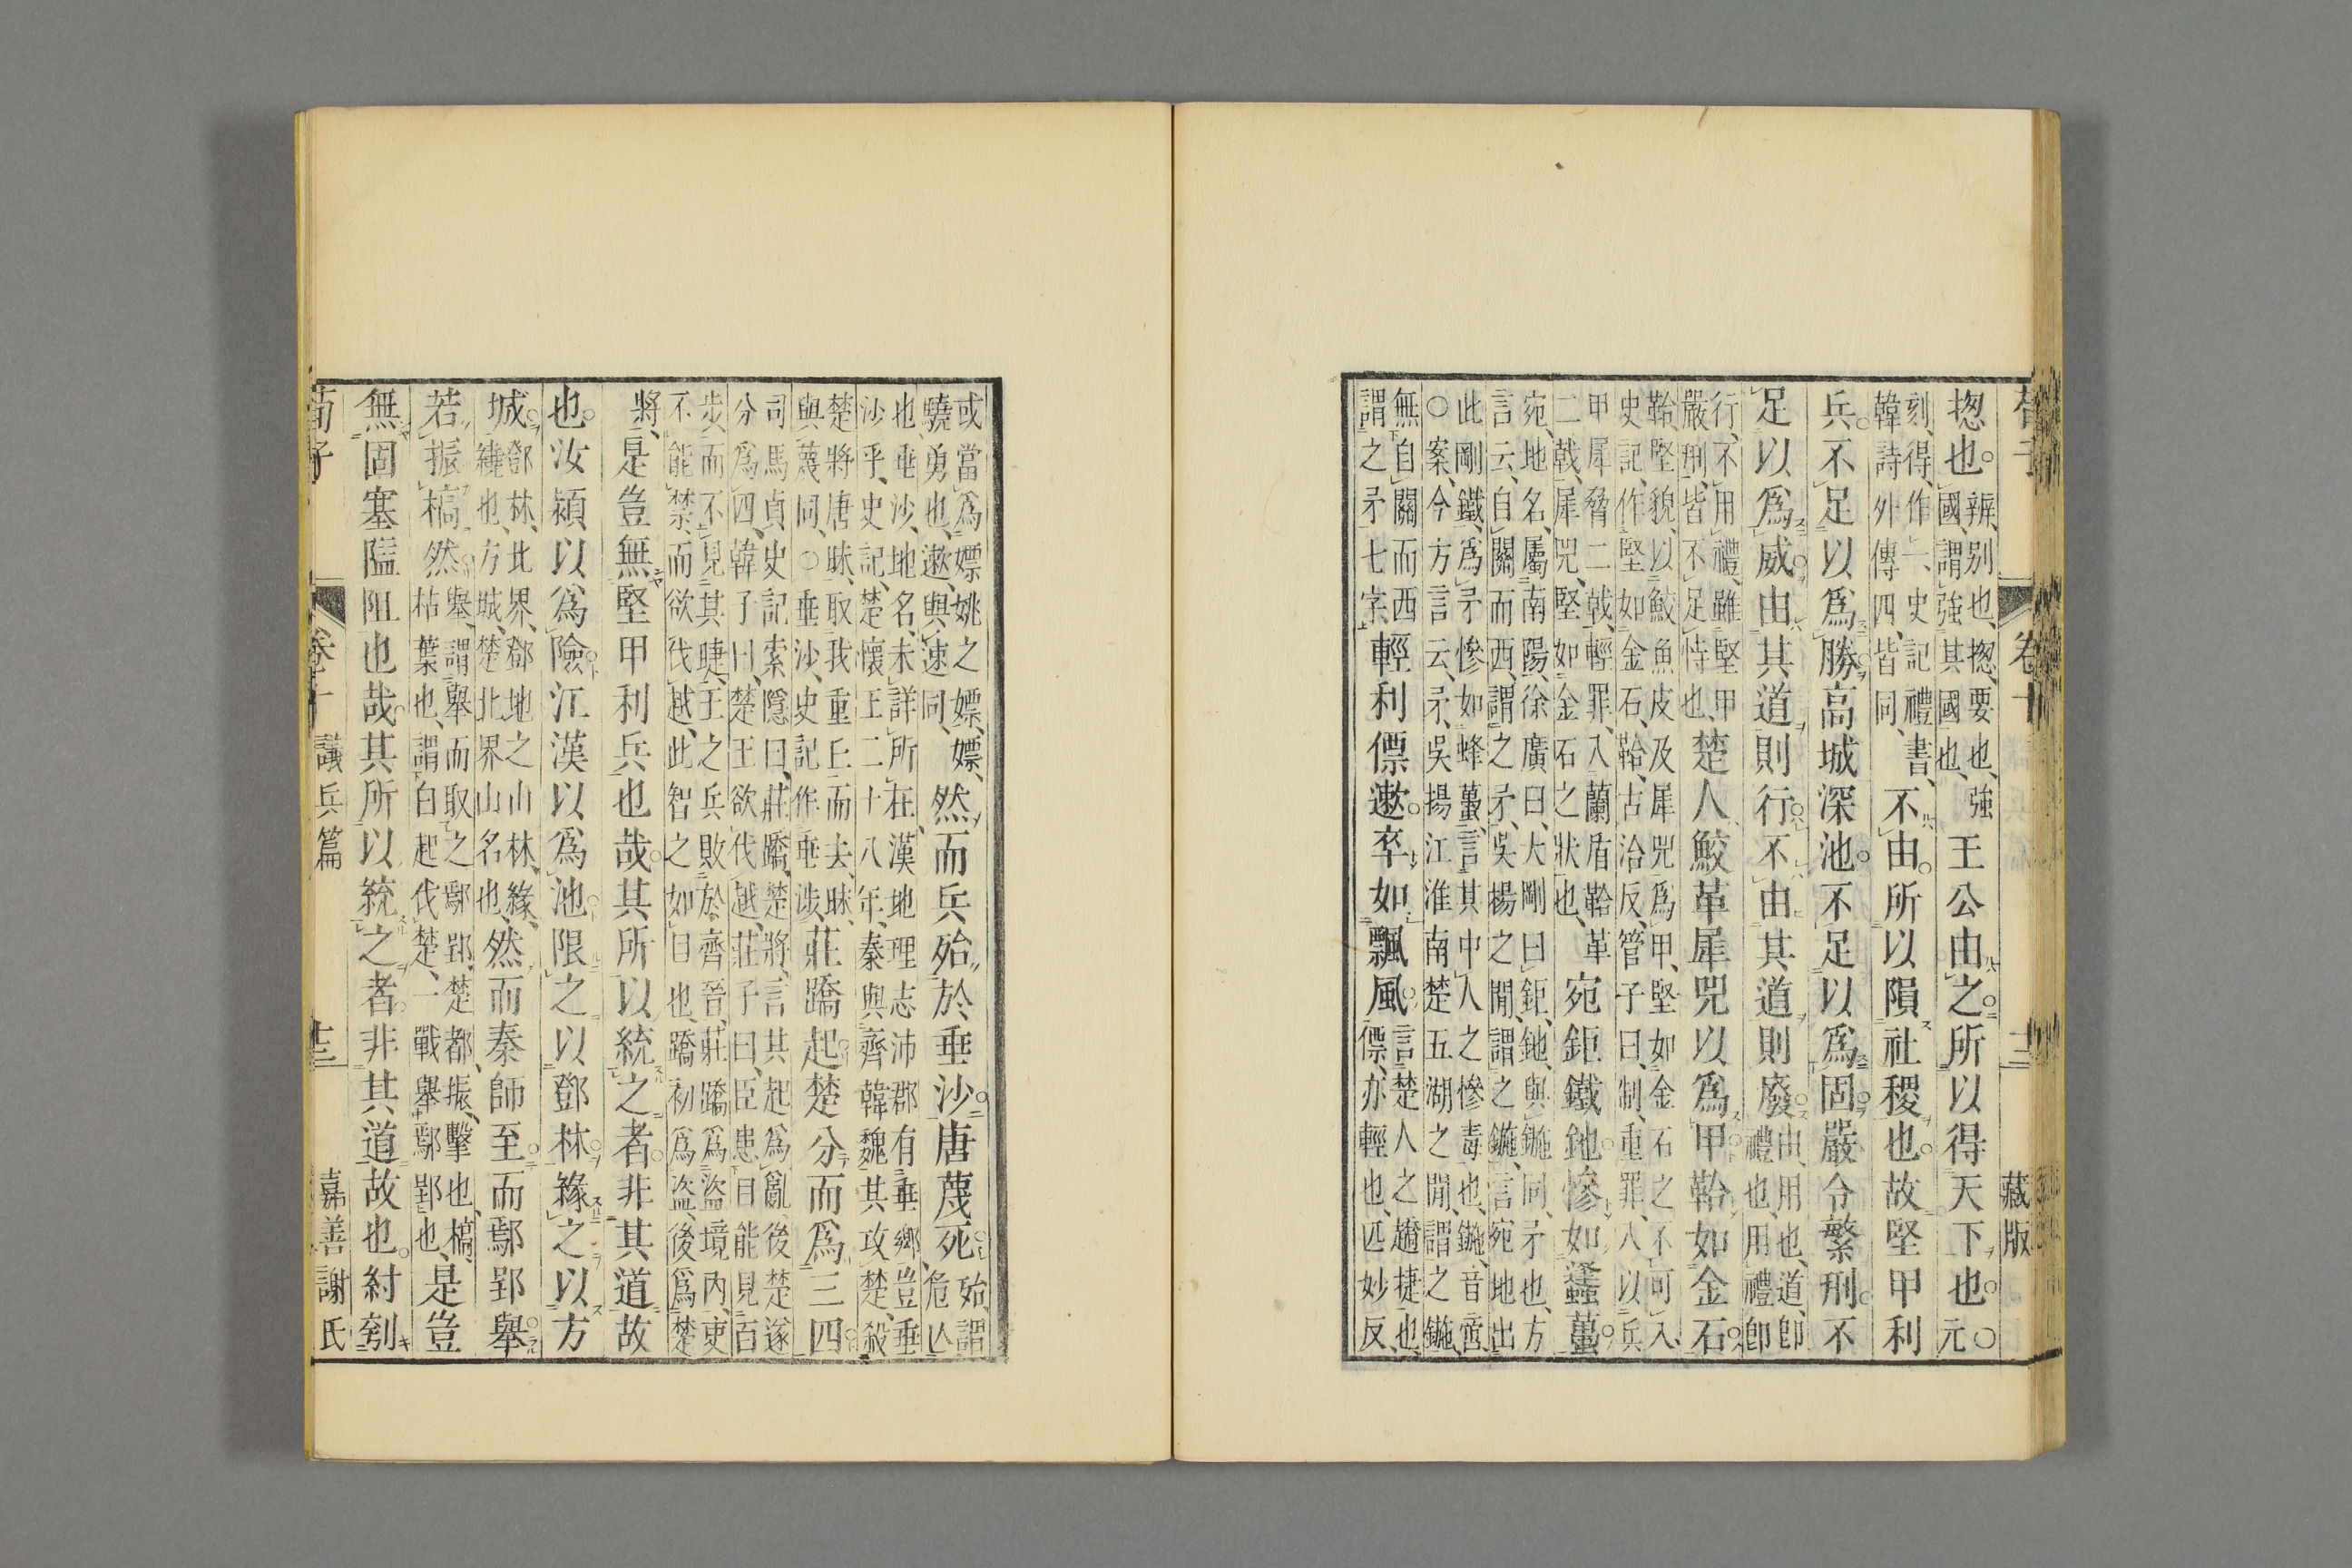 荀子 卷十 十二 藏版
揔也辨、別也、揔、要也、強國、謂強其國也、王公由之所以得天下也○元
刻、得、作一、史記禮書、韓詩外傳四、皆同、不由所以隕社稷也故堅甲利
兵不足以爲勝高城深池不足以爲固嚴令繁刑不
足以爲威由其道則行不由其道則廢由、用也、道、卽禮也、用禮卽
行、不用禮、雖堅甲嚴刑、皆不足恃也、楚人鮫革犀兕以爲甲鞈如金石
鞈、堅貌、以鮫魚皮及犀兕爲甲、堅如金石之不可入、史記、作堅如金石、鞈、古洽反、管子曰、制、重罪、入以兵
甲犀脅二戟、輕罪、入蘭盾鞈革二戟、犀兕、堅如金石之狀也、宛鉅鐵釶慘如蠭蠆
宛、地名、屬南陽、徐廣曰、大剛曰鉅、釶、與鍦同、矛也、方言云、自關而西、謂之矛、吳楊之閒、謂之鍦、言宛地出
此剛鐵、爲矛慘如蜂蠆、言其中人之慘毒也、鍦、音啻、○案、今方言云、矛、吳揚江淮南楚五湖之閒、謂之鍦、
無自關而西謂之矛七字輕利僄遫卒如飄風言楚人之趫捷也、僄、亦輕也、匹妙反、
或當爲嫖姚之嫖、嫖、驍勇也、遫、與速同、然而兵殆於垂沙唐蔑死殆、謂危亾
也、垂沙、地名、未詳所在、漢地理志沛郡有垂鄉、豈垂沙乎、史記、楚懷王二十八年、秦與齊韓魏共攻楚、殺
楚將唐昧、取我重丘而去、昧、與蔑同、○垂沙、史記作垂涉、莊蹻起楚分而爲三四
司馬貞史記索隱曰、莊蹻、楚將、言其起爲亂、後楚遂分爲四、韓子曰、楚王欲伐越、莊子曰、臣患目能見百
步而不見其睫、王之兵敗於齊晉、莊蹻爲盜境內、吏不能禁、而欲伐越、此智之如目也、蹻初爲盜、後爲楚
將、是豈無堅甲利兵也哉其所以統之者非其道故
也汝潁以爲險江漢以爲池限之以鄧林緣之以方
城鄧林、北界、鄧地之山林、緣、繞也、方城、楚北界山名也、然而秦師至而鄢郢舉
若振槁然舉、謂舉而取之、鄢郢、楚都、振、擊也、槁、枯葉也、謂白起伐楚、一戰舉鄢郢也、是豈
無固塞隘阻也哉其所以統之者非其道故也紂刳
荀子 卷十 議兵篇 十三 嘉善謝氏